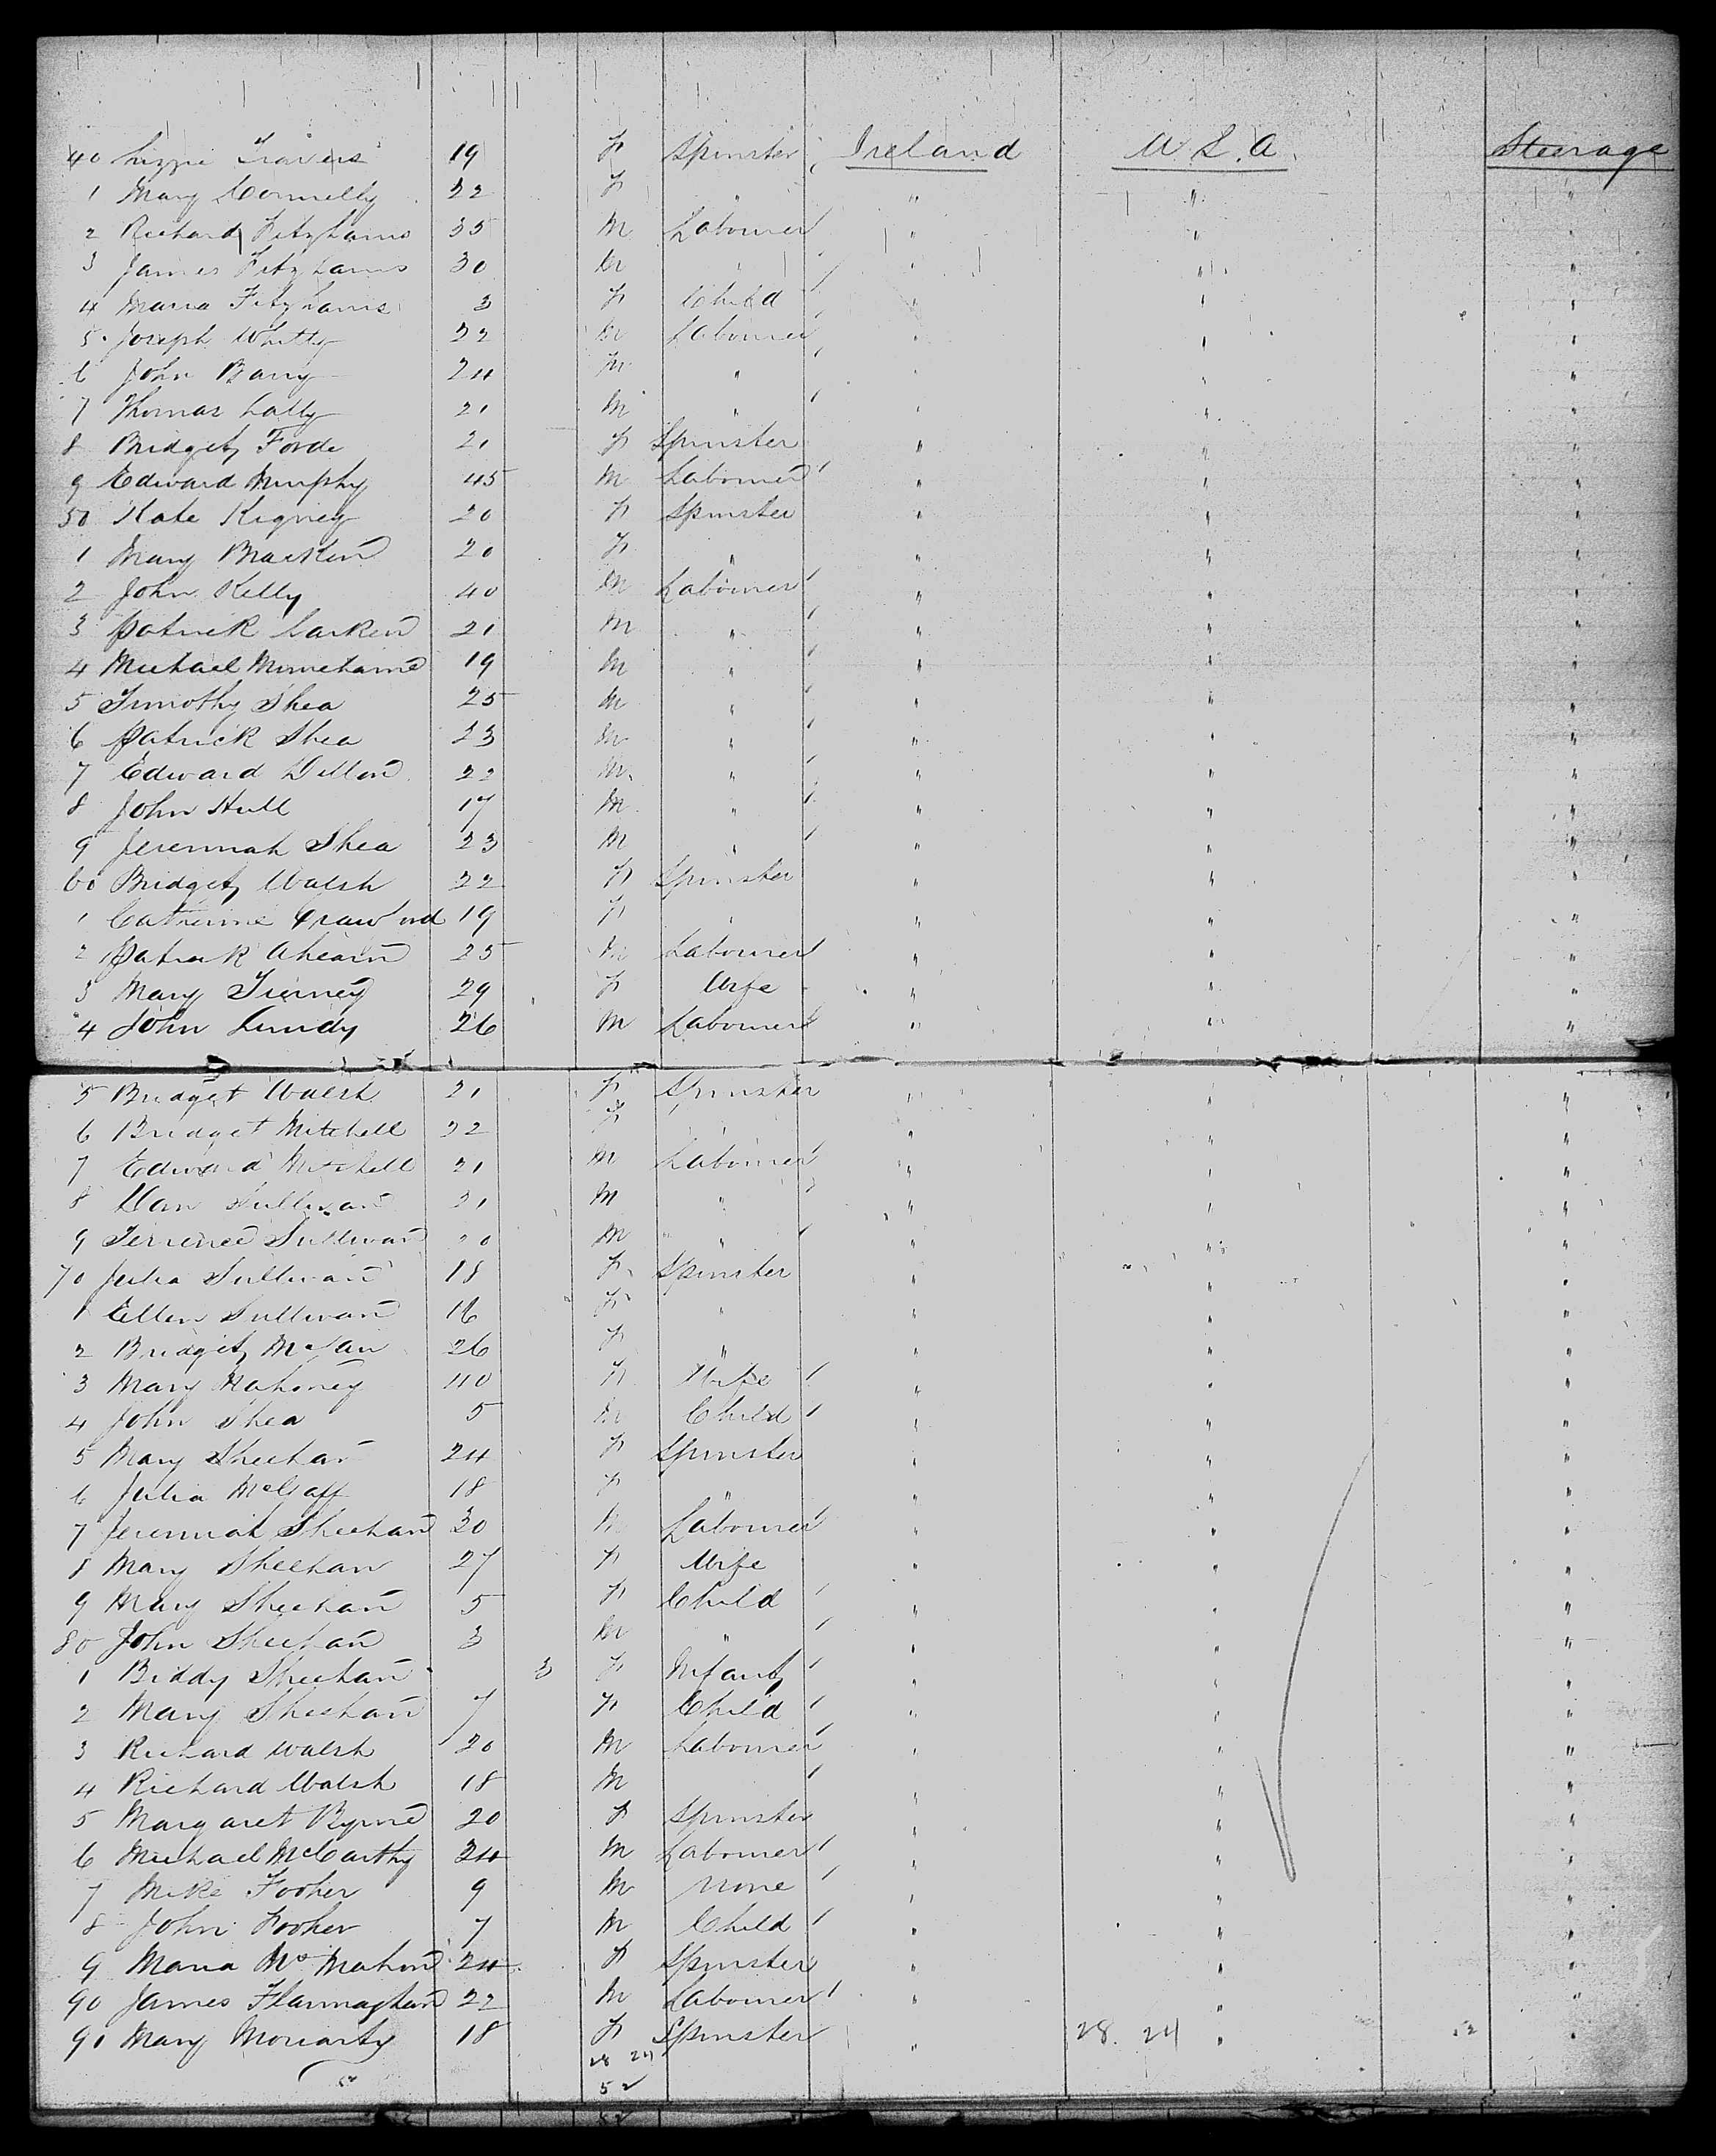 40 Lizzie Travers 19 F Spinster Ireland U.S.A. Steerage
1 Mary Connelly 22 F " " " "
2 Richard 35 M Labourer " " "
3 James 30 M " " " "
4 Maria 3 F Child " " "
5 Joseph Whitty 22 M Labourer " " "
6 John Barry 24 M " " " "
7 Thomas Lally 21 M " " " "
8 Bridget Forde 21 F Spinster " " "
9 Edward Murphy 45 M Labourer " " "
50 Kate Rigney 20 F Spinster " " "
1 Mary Bracken 20 F " " " "
2 John Kelly 40 M Labourer " " "
3 Patrick Larken 21 M " " " "
4 Michael 19 M " " " "
5 Timothy Shea 25 M " " " "
6 Patrick Shea 23 M " " " "
7 Edward Dillon 22 M " " " "
8 John Hull 17 M " " " "
9 Jeremiah Shea 23 M " " " "
60 Bridget Walsh 22 F Spinster " " "
1 Catherine Crawford 19 F " " " "
2 Patrick Ahearn 25 M Labourer " " "
3 Mary Tierney 29 F Wife " " "
4 John Lundy 26 M Labourer " " "
5 Bridget Walsh 21 F Spinster " " "
6 Bridget Mitchell 22 F " " " "
7 Edward Mitchell 21 M Labourer " " "
8 Dan Sullivan 21 M " " " "
9 Terrence Sullivan 20 M " " " "
70 Julia Sullivan 18 F Spinster " " "
1 Ellen Sullivan 16 F " " " "
2 Bridget 26 F " " " "
3 Mary Mahoney 40 F Wife " " "
4 John Shea 5 M Child " " "
5 Mary Sheehan 24 F Spinster " " "
6 Julia McGaff 18 F " " " "
7 Jeremiah Sheehan 30 M Labourer " " "
8 Mary Sheehan 27 F Wife " " "
9 Mary Sheehan 5 F Child " " "
80 John Sheehan 3 M " " " "
1 Biddy Sheehan 3 F Infant " " "
2 Mary Sheehan 7 F Child " " "
3 Richard Walsh 20 M Labourer " " "
4 Richard Walsh 18 M " " "
5 Margaret Byrne 20 F Spinster " " "
6 Michael McCarthy 24 M Labourer " " "
7 Mike Fooher 9 M None " " "
8 John Fooher 7 M Child " " "
9 Maria McMahon 24 F Spinster " " "
90 James Flannaghan 22 M Labourer " " "
91 Mary Moriarty 18 F Spinster " 28. 24 " "
28 24
52